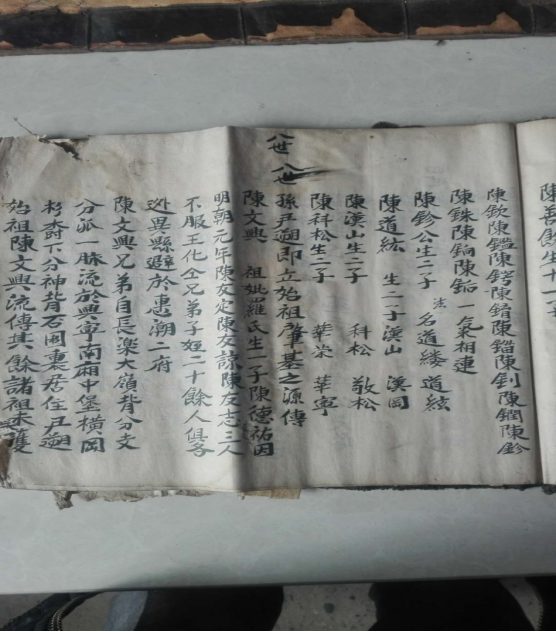 陳欽陳鑑陳鍔陳錯陳錨陳釗陳鐗陳鈐
陳銖陳銄陳鉛一氣相連
陳鈐公生二子 法名道縷 道紘
陳道紘 生二子 溪山 溪岡
陳漢山生二子 科松 敬松
陳科松生二子 華榮 華寧
八世 孫尹遡即立始祖肇基之源傳
八世 陳文興 祖妣羅氏生一子陳德祐因
明朝元年陳友定陳友諒陳友志三人
不服王化仝兄弟子姪二十餘人俱各
迯異縣避於惠潮二府
陳文興兄弟自長樂大嶺背分支
分派一脉流於興寧南廂中堡橫岡
杉斎下分神背石囲裏居住尹遡
始祖陳文興流傳其餘諸祖未獲